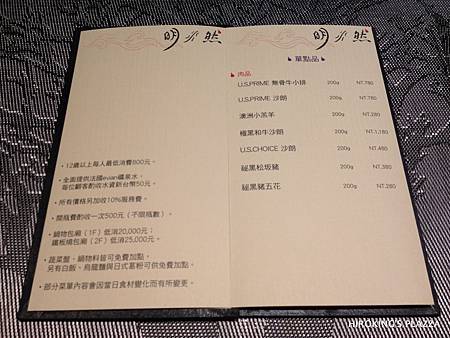 明水然
• 12歲以上每人最低消費800元。
• 全面提供法國evian礦泉水，
每位顧客酌收水資新台幣50元。
• 所有價格另加收10%服務費。
• 開瓶費酌收一次500元（不限瓶數）。
• 鍋物包廂（1F）低消20,000元；
鐵板燒包廂（2F）低消25,000元。
• 蔬菜盤、鍋物料皆可免費加點，
另有白飯、烏龍麵與日式葛粉可供免費加點。
• 部分菜單內容會因當日食材變化而有所變更。
明水然
單點品
肉品
U.S.PRIME 無骨牛小排 200g NT.780
U.S.PRIME 沙朗 200g NT.780
澳洲小羔羊 200g NT.280
極黑和牛沙朗 200g NT.1,180
U.S.CHOICE 沙朗 200g NT.480
祕黑松坂豬 200g NT.380
祕黑豬五花 200g NT.280
HIROKING'S PLAZZA